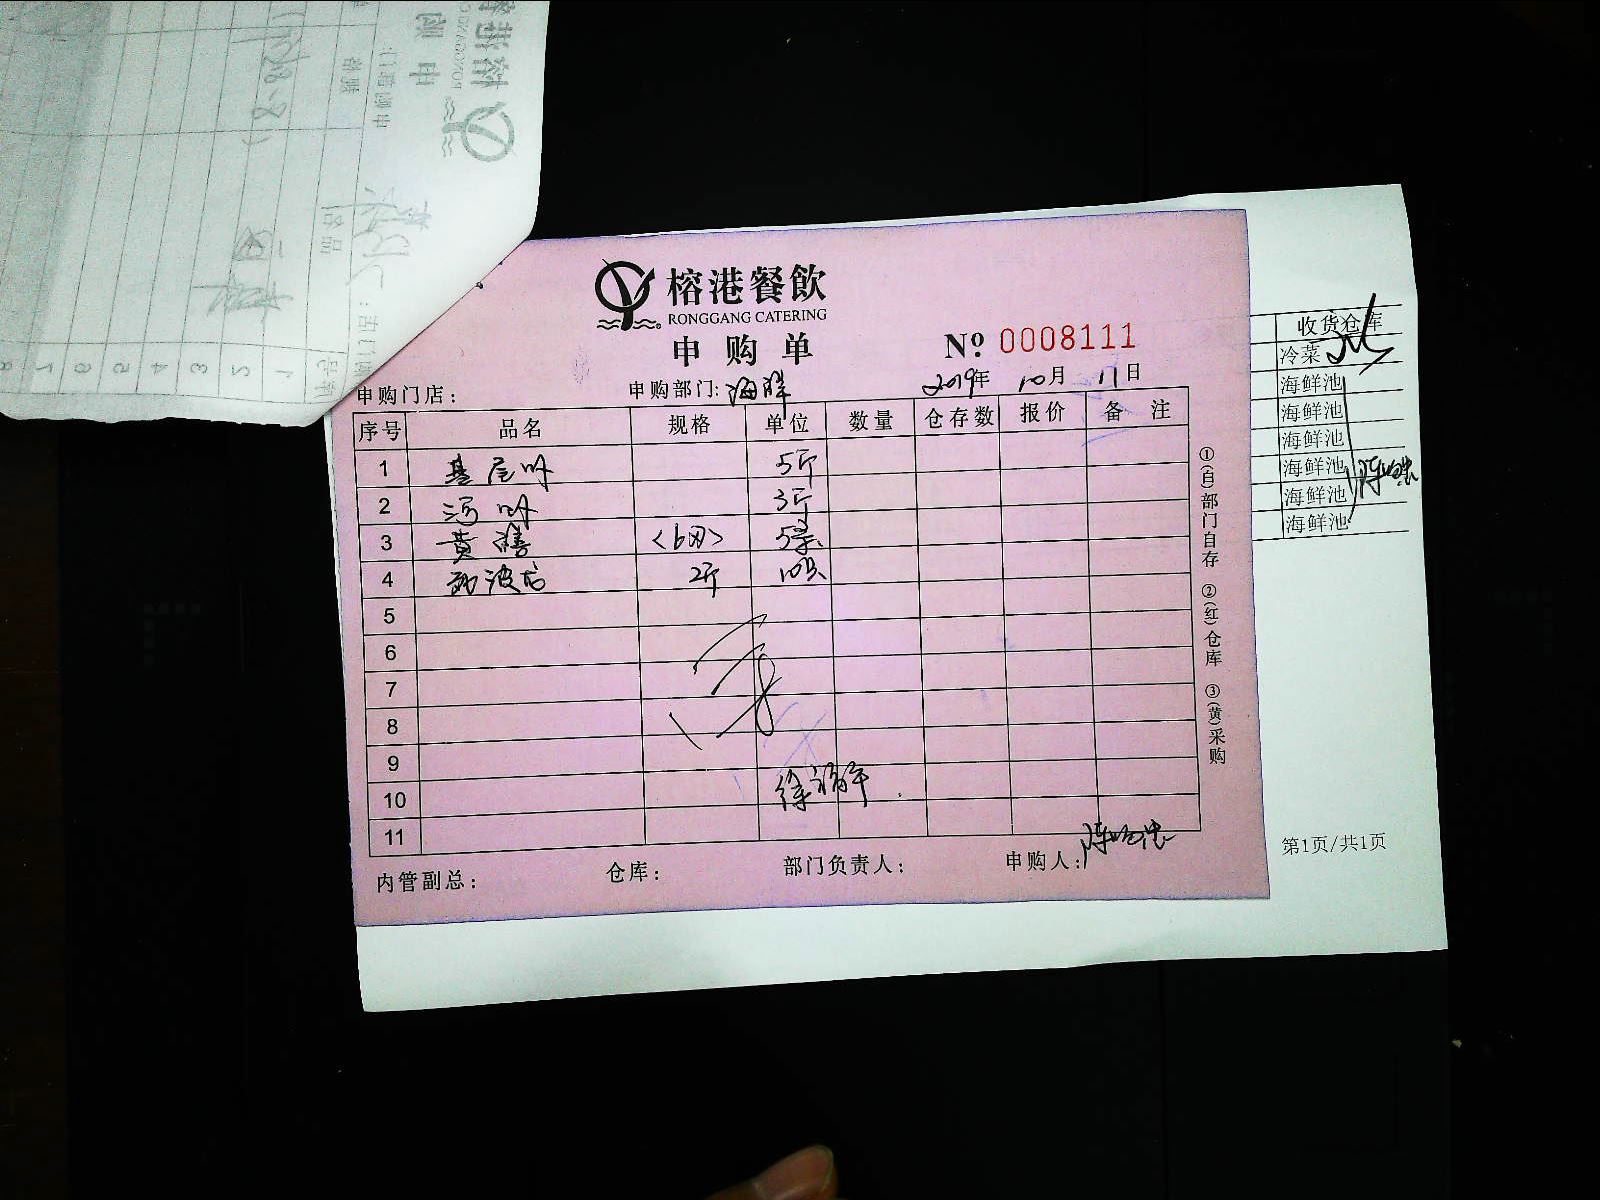 榕港餐飲
RONGGANG CATERING
申购单
Nº 0008111
申购门店： 申购部门：海鲜 2019年 10月 11日
序号 品名 规格 单位 数量 仓存数 报价 备注
1 基尾虾 5斤
2 河虾 3斤
3 黄鳝 <6两> 5条
4 波龙 2斤 10只
5
6
7
8
9
10
11
内管副总： 仓库： 部门负责人： 申购人：
①(自)部门自存 ②(红)仓库 ③(黄)采购
收货仓库
冷菜
海鲜池
海鲜池
海鲜池
海鲜池
海鲜池
海鲜池
第1页/共1页